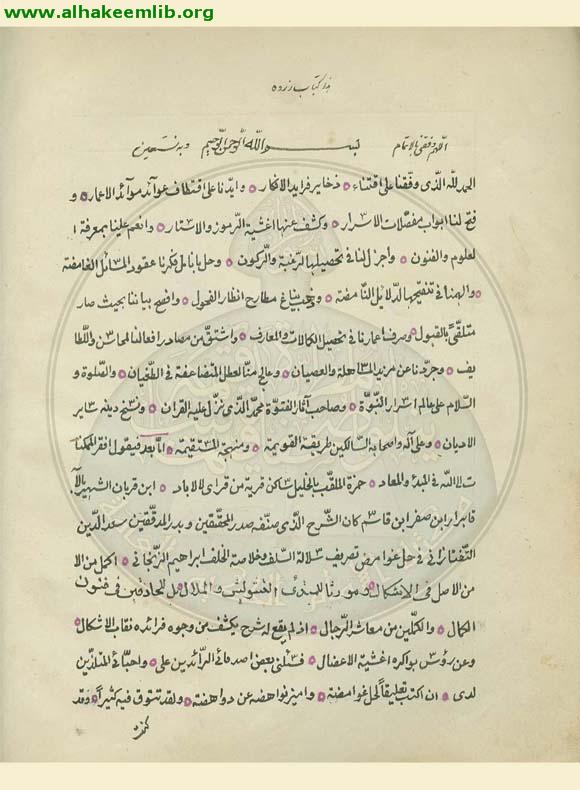 www.alhakeemlib.org
هذا كتاب زرده
اللهم وفقني بالاتمام بسم الله الرحمن الرحيم وبه نستعين
الحمد لله الذى وفقنا على اقتناء ذخاير فرايد الافكار وايدنا على اقتطاف عوائد موائد الاعمار و
فتح لنا ابواب مفصلات الاسرار وكشف عنها اغشية الرموز والاستار وانعم علينا بمعرفة ا
لعلوم والفنون واجزل لنا فى تحصيلها الرغبة والركون وحل بانامل فكرنا عقود المسائل الغامضة
والهمنا فى تنقيحها الدلايل النامضة مطارح انظار الفحول وافصح بياننا بحيث صار
متلقى بالقبول وصرف اعمارنا فى تحصيل الكمالات والمعارف واشتق من مصادر افعالنا المحاسن واللطا
يف وجردنا عن مزيد المجاهلة والعصيان وعالج منا العلل المتضاعفة فى الطغيان والصلوة و
السلام على عالم اسرار النبوة وصاحب آثار الفتوة محمد الذى نزل عليه القرآن ونسخ دينه ساير
الاديان وعلى آله واصحابه السالكين طريقة القويمة ومنهجه المستقيمة اما بعد فيقول افقر الممكنا
ت لاالله فى المبدء والمعاد حمزة الملقب بالخليل ساكن قرية من قراى ابن قربان الشهير
ابن صفر ابن قاسم كان الشرح الذى صنفه صدر المحققين وبدر المدققين سعد الدين
التفتازانى فى حل غوامض تصريف سلالة السلف وخلاصة الخلف ابراهيم الزنجانى اكمل من الا
من الاصل فى الاشكال ومورثا للمبتدى والملال بل للحاذقين فى فنون
الكمال والكملين من معاشر الرجال اذ لم يقع له شرح يكشف من وجوه فرائده نقاب الاشكال
وعن رؤس بواكره اغشية الاعضال فسئلنى بعض اصدقائى الرائدين على واحبائى المتلذذين
لدى ان اكتب تعليقا لحل غوامضه واميز نواهضه عن دواهضه ولقد تشوق فيه كثيرا وقد
كنت